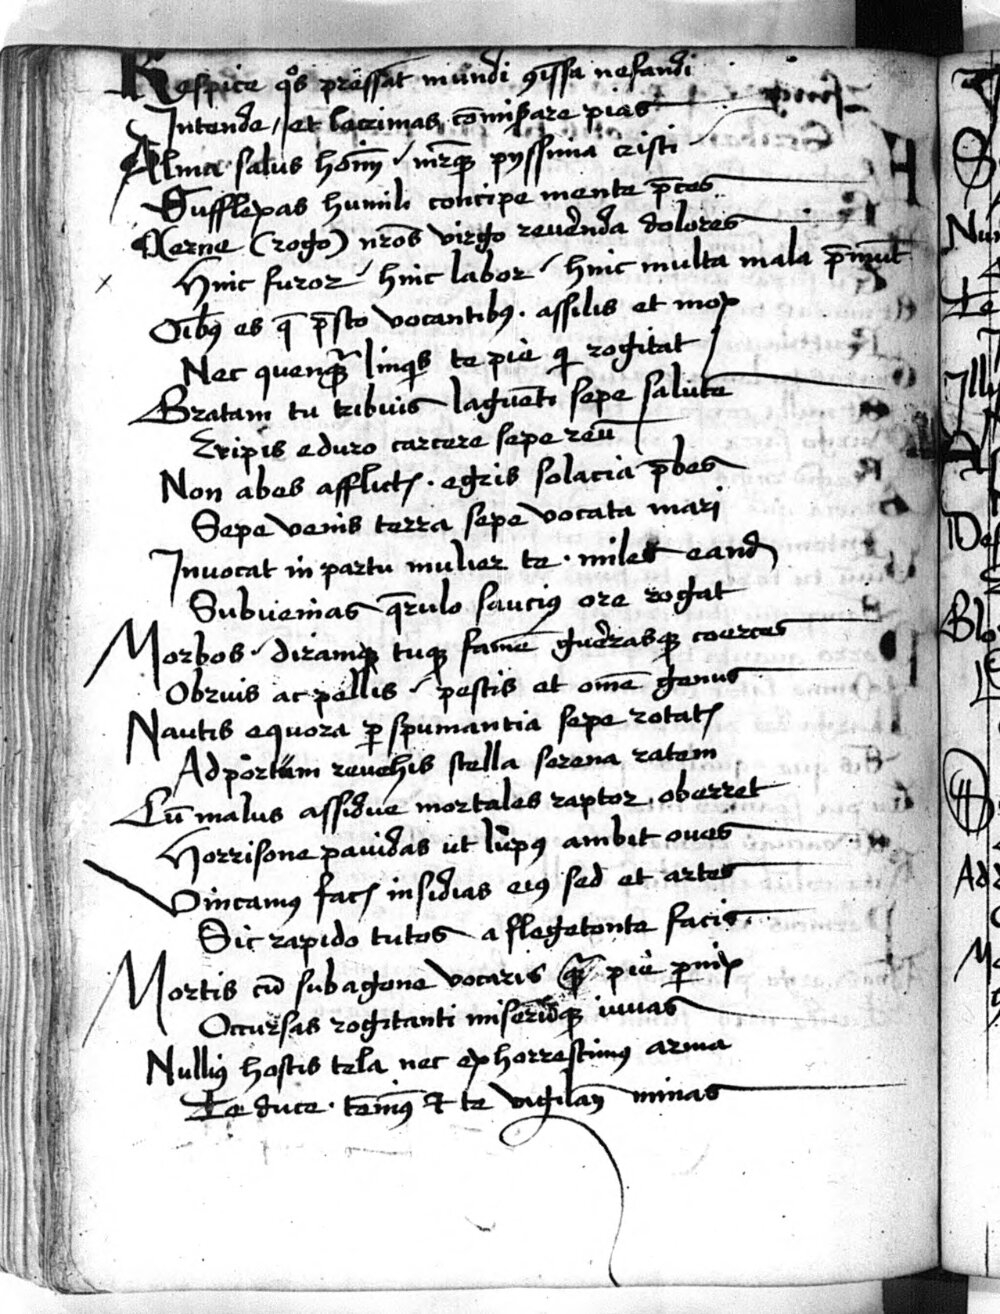 Respice q̊s pressat mundi ꝯgissa nefandi
Intende / et lacrimas comisare pias
Alma salus hoım̄ / mr̄qȝ pyssima cristi
Sufflexas humili concipe mente p̄ces
Cerne (rogo) nr̄os virgo reuerenda dolores
Hinc furor / hinc labor / hinc multa mala p̄mūt
Oībꝰ es q̄ p̄sto vocantibꝰ . assilis et mox
Nec quenqȝ linqͥs te pie qͥ rogitat
Gratam tu tribuis laguēti sepe salutē
Eripis e duro carcere sepe reū
Non abes afflictꝭ . egris solacia p̄bes
Sepe venis terra sepe vocata mari
Inuocat in partu mulier te . miles eand
Subuenias q̄rulo sauciꝰ ore rogat
Morbos / diramqȝ tuqȝ famē guerrasqȝ coerces
Obruis ac pellis / pestis et om̄e genus
Nautis equora ꝑ spumantia sepe rotatꝭ
Ad portum reuehis stella serena ratem
Cū malus assidue mortales raptor oberret
Horrisone pauidas ut lupꝰ ambit oues
Vincamꝰ facꝭ insidias eiꝰ sed et artes
Sic rapido tutos a flegetonte facis
Mortis cū sub agone vocaris qȝ pie ꝑnix
Occursas rogitanti miserōqȝ iuuas
Nulliꝰ hostis tela nec exhorrescimꝰ arma
Te duce . temīꝰ et te vigilan minas